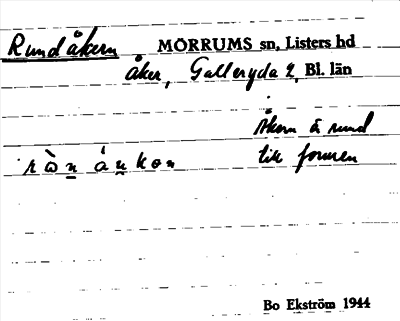 Rundåkern MÖRRUMS sn, Listers hd
Åker, Galleryda 2, Bl. län
Åkern är rund
till formen
Bo Ekström 1944